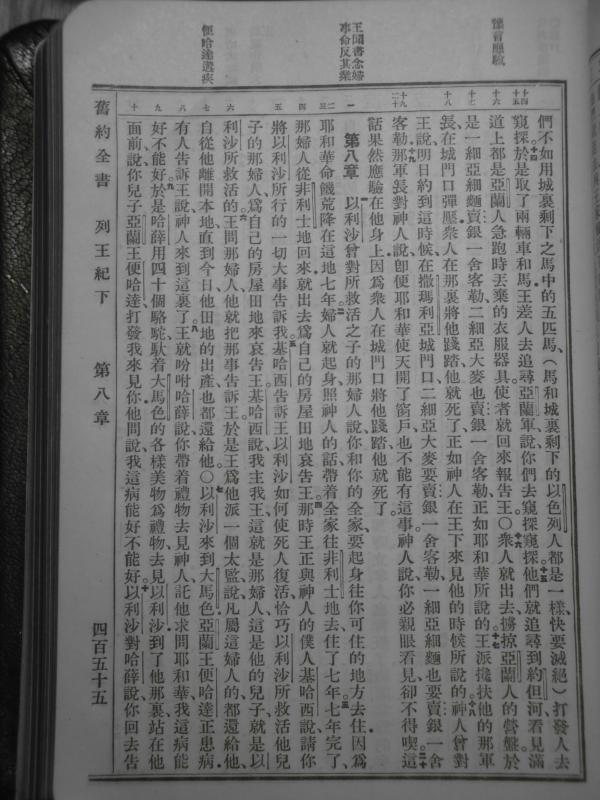 豫言應驗
事命反其業
便哈達遘疾
十四
十五
十六
十七
十八
十九
二十
一
二
三
四
五
六
七
八
九
十
們不如用城裏剩下之馬中的五匹馬、(馬和城裏剩下的以色列人都是一樣快要滅絕)打發人去
窺探。十四於是取了兩輛車和馬、王差人去追尋亞蘭軍、說、你們去窺探窺探。十五他們就追尋到約但河、看見滿
道上都是亞蘭人急跑時丟棄的衣服器具、使者就回來報告王。○十六眾人就出去擄掠亞蘭人的營盤、於
是一細亞細麵賣銀一舍客勒、二細亞大麥也賣銀一舍客勒、正如耶和華所說的。十七王派攙扶他的那軍
長在城門口彈壓、眾人在那裏將他踐踏、他就死了、正如神人在王下來見他的時候所說的。十八神人曾對
王說、明日約到這時候、在撒瑪利亞城門口、二細亞大麥要賣銀一舍客勒、一細亞細麵也要賣銀一舍
客勒。十九那軍長對神人說、即便耶和華使天開了窗戶、也不能有這事、神人說、你必親眼看見、卻不得喫。二十這
話果然應驗在他身上、因為眾人在城門口將他踐踏、他就死了。
第八章 以利沙曾對所救活之子的那婦人說、你和你的全家、要起身往你可住的地方去住、因為
耶和華命饑荒降在這地七年。二婦人就起身、照神人的話、帶着全家往非利士地去、住了七年。三七年完了、
那婦人從非利士地回來、就出去為自己的房屋田地哀告王。四那時王正與神人的僕人基哈西說、請你
將以利沙所行的一切大事告訴我。五基哈西告訴王以利沙如何使死人復活、恰巧以利沙所救活他兒
子的那婦人、為自己的房屋田地來哀告王、基哈西說、我主我王、這就是那婦人、這是他的兒子、就是以
利沙所救活的。六王問那婦人、他就把那事告訴王、於是王為他派一個太監、說、凡屬這婦人的都還給他、
自從他離開本地、直到今日、他田地的出產、也都還給他。○七以利沙來到大馬色、亞蘭王便哈達正患病、
有人告訴王說、神人來到這裏了。八王就吩咐哈薛說、你帶着禮物去見神人、託他求問耶和華、我這病能
好不能好。九於是哈薛用四十個駱駝、馱着大馬色的各樣美物為禮物、去見以利沙、到了他那裏、站在他
面前、說、你兒子亞蘭王便哈達打發我來見你、他問說、我這病能好不能好。十以利沙對哈薛說、你回去告
舊約全書 列王紀下 第八章 四百五十五